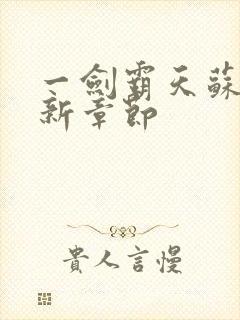 一劍霸天蘇
新章節
貴人言慢